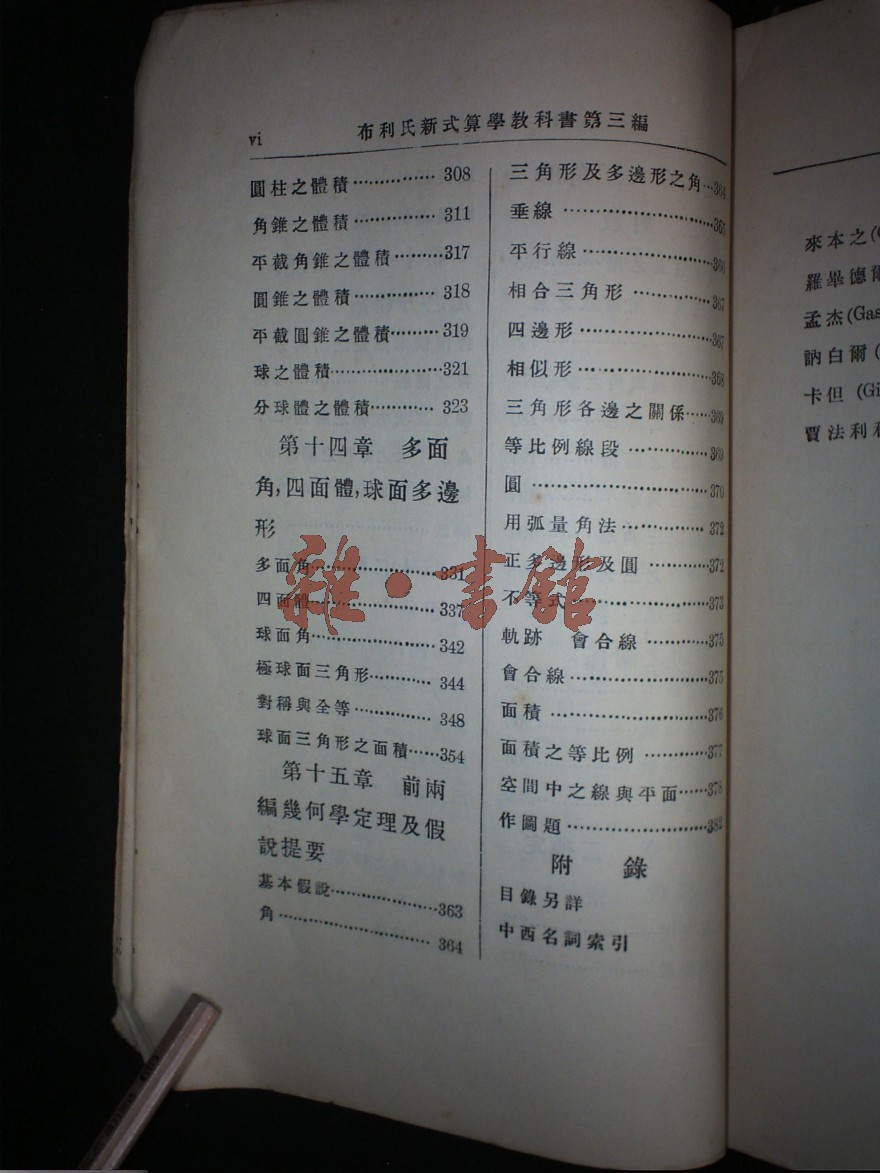 vi 布利氏新式算學教科書第三編
圓柱之體積……………308
角錐之體積……………311
平截角錐之體積………317
圓錐之體積……………318
平截圓錐之體積………319
球之體積………………321
分球體之體積…………323
第十四章 多面
角,四面體,球面多邊
形
多面角…………………331
四面體…………………337
球面角…………………342
極球面三角形…………344
對稱與全等……………348
球面三角形之面積……354
第十五章 前兩
編幾何學定理及假
說提要
基本假說………………363
角………………………364
三角形及多邊形之角…364
垂線……………………365
平行線…………………366
相合三角形……………367
四邊形…………………367
相似形…………………368
三角形各邊之關係……369
等比例線段……………369
圓………………………370
用弧量角法……………372
正多邊形及圓…………372
不等式…………………373
軌跡 會合線…………375
會合線…………………375
面積……………………376
面積之等比例…………377
空間中之線與平面……378
作圖題…………………382
附錄
目錄另詳
中西名詞索引
雜·書館
來本之(
羅畢德爾
孟杰(Gas
訥白爾(
卡但 (Gi
賈法利